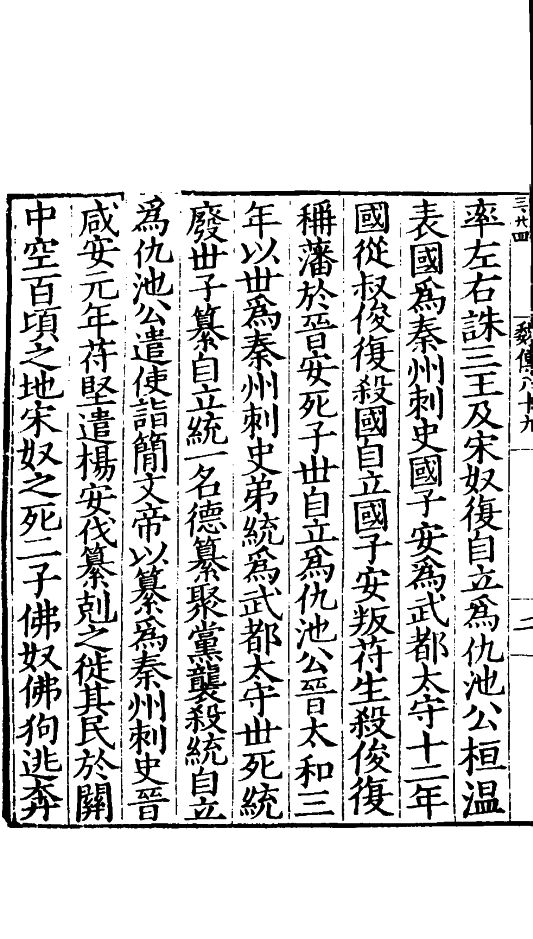 三·廿四
魏傳八十九
二
率左右誅三王及宋奴復自立爲仇池公桓温
表國爲秦州刺史國子安爲武都太守十二年
國從叔俊復殺國自立國子安叛苻生殺俊復
稱藩於晉安死子世自立爲仇池公晉太和三
年以世爲秦州刺史弟統爲武都太守世死統
廢世子纂自立統一名德纂聚黨襲殺統自立
爲仇池公遣使詣簡文帝以纂爲秦州刺史晉
咸安元年苻堅遣楊安伐纂剋之徙其民於關
中空百頃之地宋奴之死二子佛奴佛狗逃奔